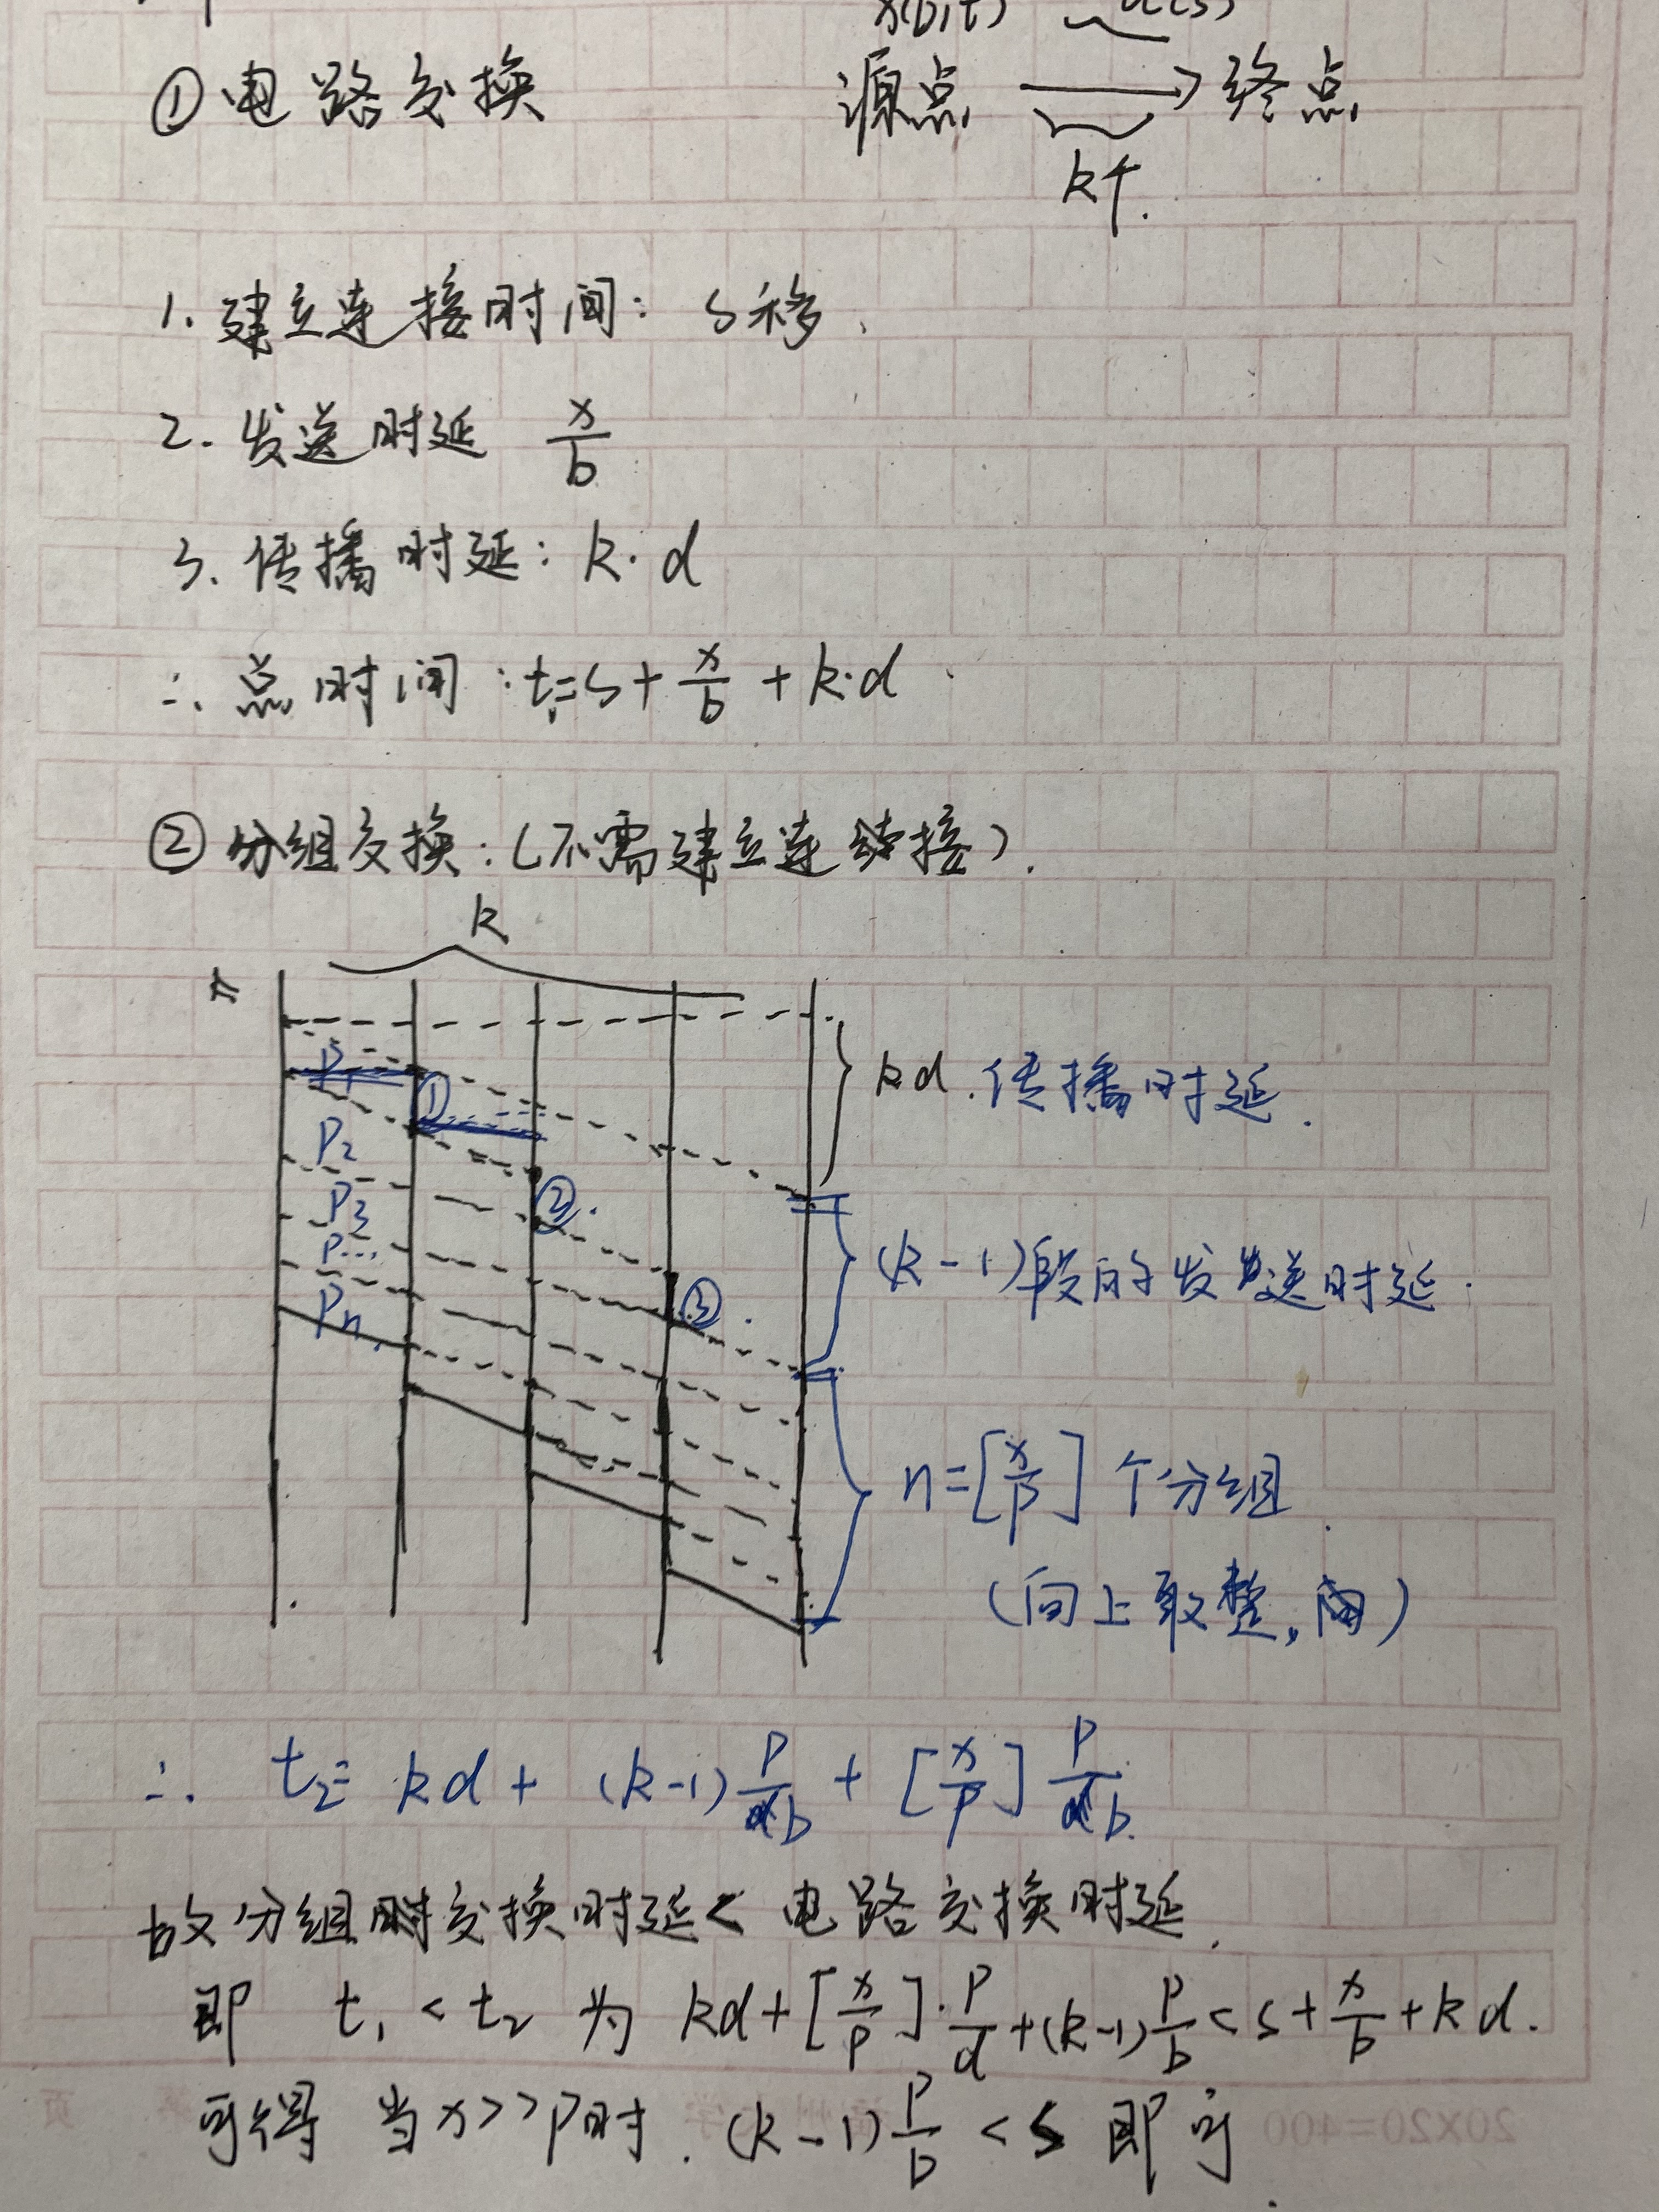 x(bit) d(s)
①电路交换 源点 → 终点
k个.
1. 建立连接时间: s秒.
2. 发送时延 x/b
3. 传播时延: k·d
∴ 总时间: t₁=s+x/b+k·d
②分组交换:(不需建立连接).
k
P₁
①
kd.传播时延.
P₂
②.
P₃
P...
(k-1)段的发送时延.
③.
Pn
n=[x/p]个分组.
(向上取整,)
∴ t₂= kd+(k-1)p/b+[x/p]p/b.
故分组交换时延< 电路交换时延.
即 t₁<t₂ 为 kd+[x/p]·p/d+(k-1)p/b<s+x/b+kd.
可得 当x>>p时. (k-1)p/b<s 即可.
20X20=400
页